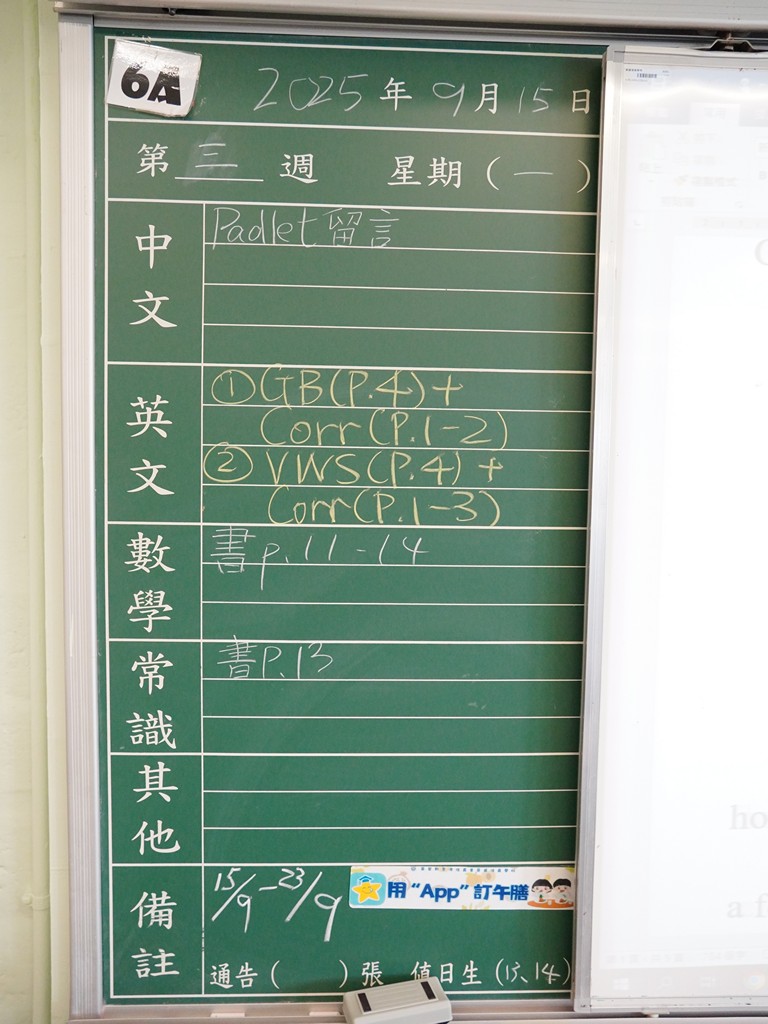 6A
2025年9月15日
第三週 星期(一)
中文
Padlet留言
英文
①GB(P.4)+
Corr(P.1-2)
②VWS(P.4)+
Corr(P.1-3)
數學
書p.11-14
常識
書P.13
其他
備註
15/9-23/9
用“App”訂午膳
通告( )張 值日生(13、14)
ho
a f